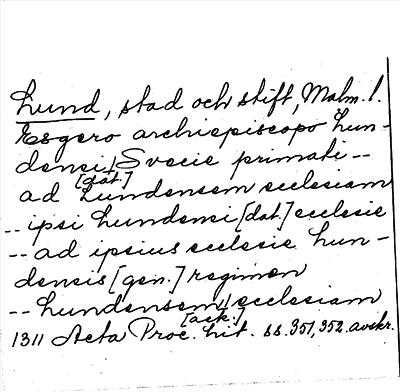 Lund, stad och stift, Malm. l.
Esgero archiepiscopo Lun-
densi Svecie primati --
[dat.]
ad Lundensem ecclesiam
-- ipsi Lundensi [dat.] ecclesie
-- ad ipsius ecclesie Lun-
densis [gen.] regimen
-- Lundensem ecclesiam
[ack.]
1311 Acta Proc. lit. ss. 351, 352. avskr.